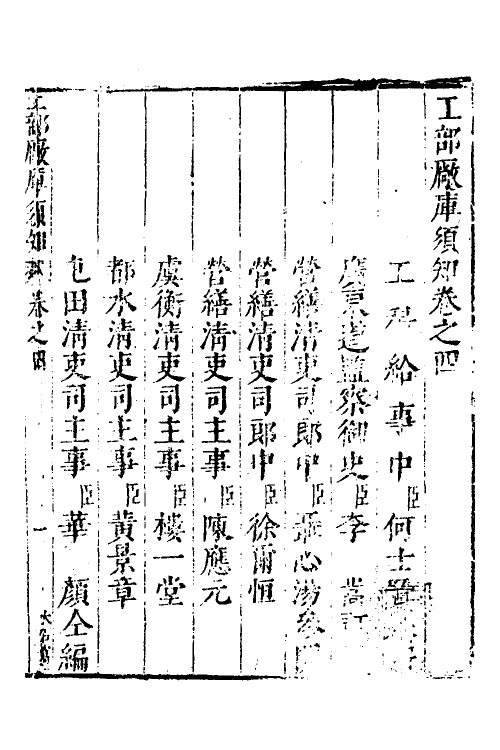 工部廠庫須知卷之四
工科給事中臣何士晉
廣東道監察御史臣李嵩訂
營繕清吏司郎中臣張心湯參
營繕清吏司郎中臣徐爾恒
營繕清吏司主事臣陳應元
虞衡清吏司主事臣樓一堂
都水清吏司主事臣黃景章
屯田清吏司主事臣華顏仝編
工部廠庫須知 卷之四 一